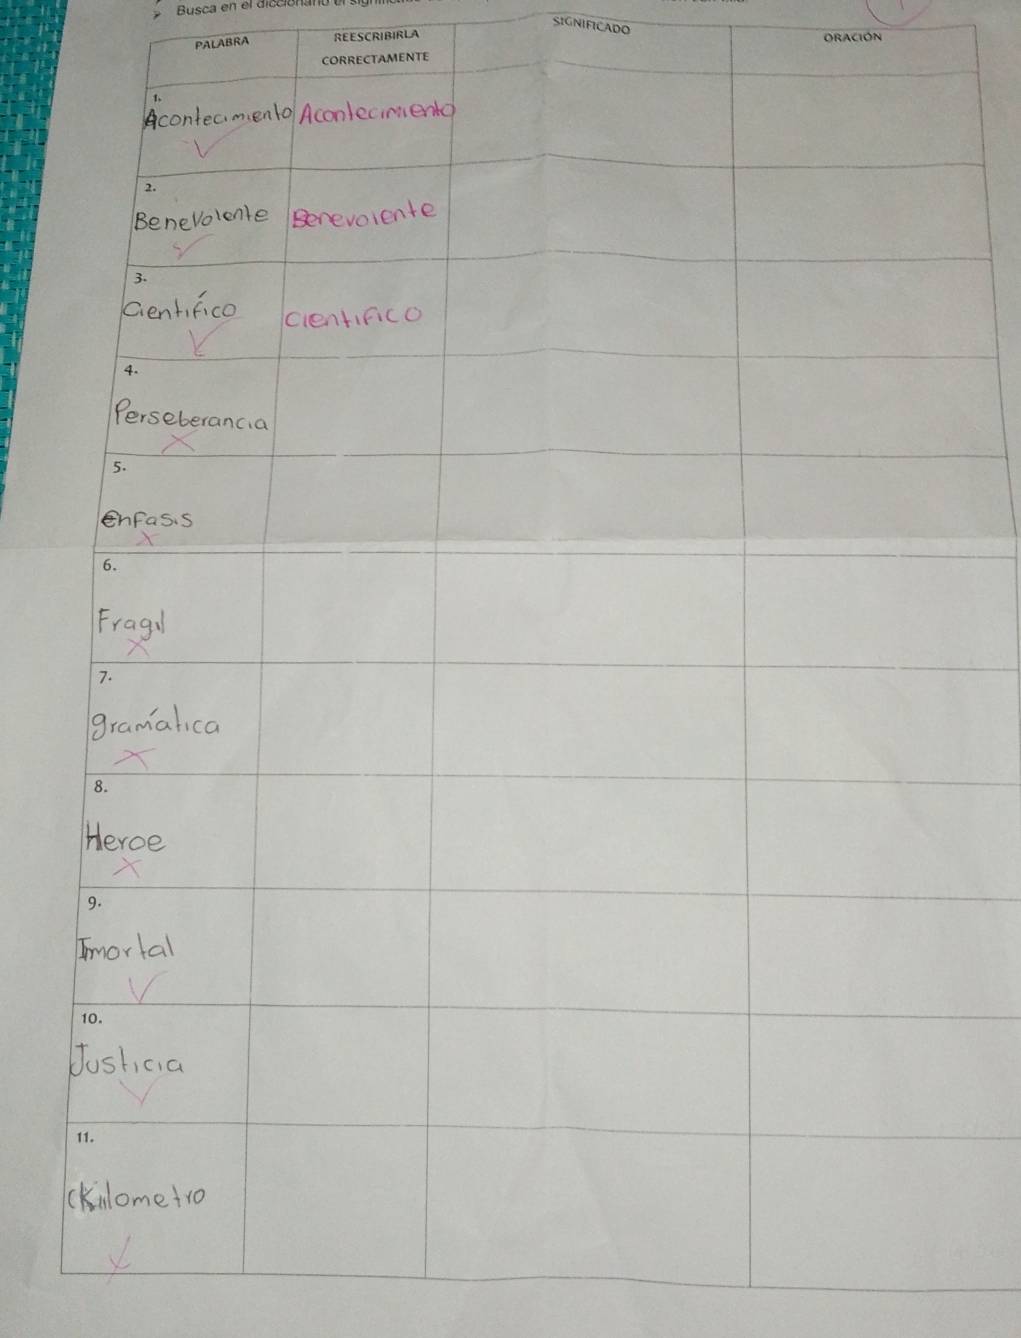 Busca en el diccionario el
PALABRA
REESCRIBIRLA
CORRECTAMENTE
SIGNIFICADO
ORACIÓN
1.
Acontecimiento Acontecimiento
2.
Benevolente Benevolente
3.
Científico cientifico
4.
Perseberancia
5.
enfasis
6.
Fragil
7.
gramática
8.
Heroe
9.
Imortal
10.
Justicia
11.
Kilometro